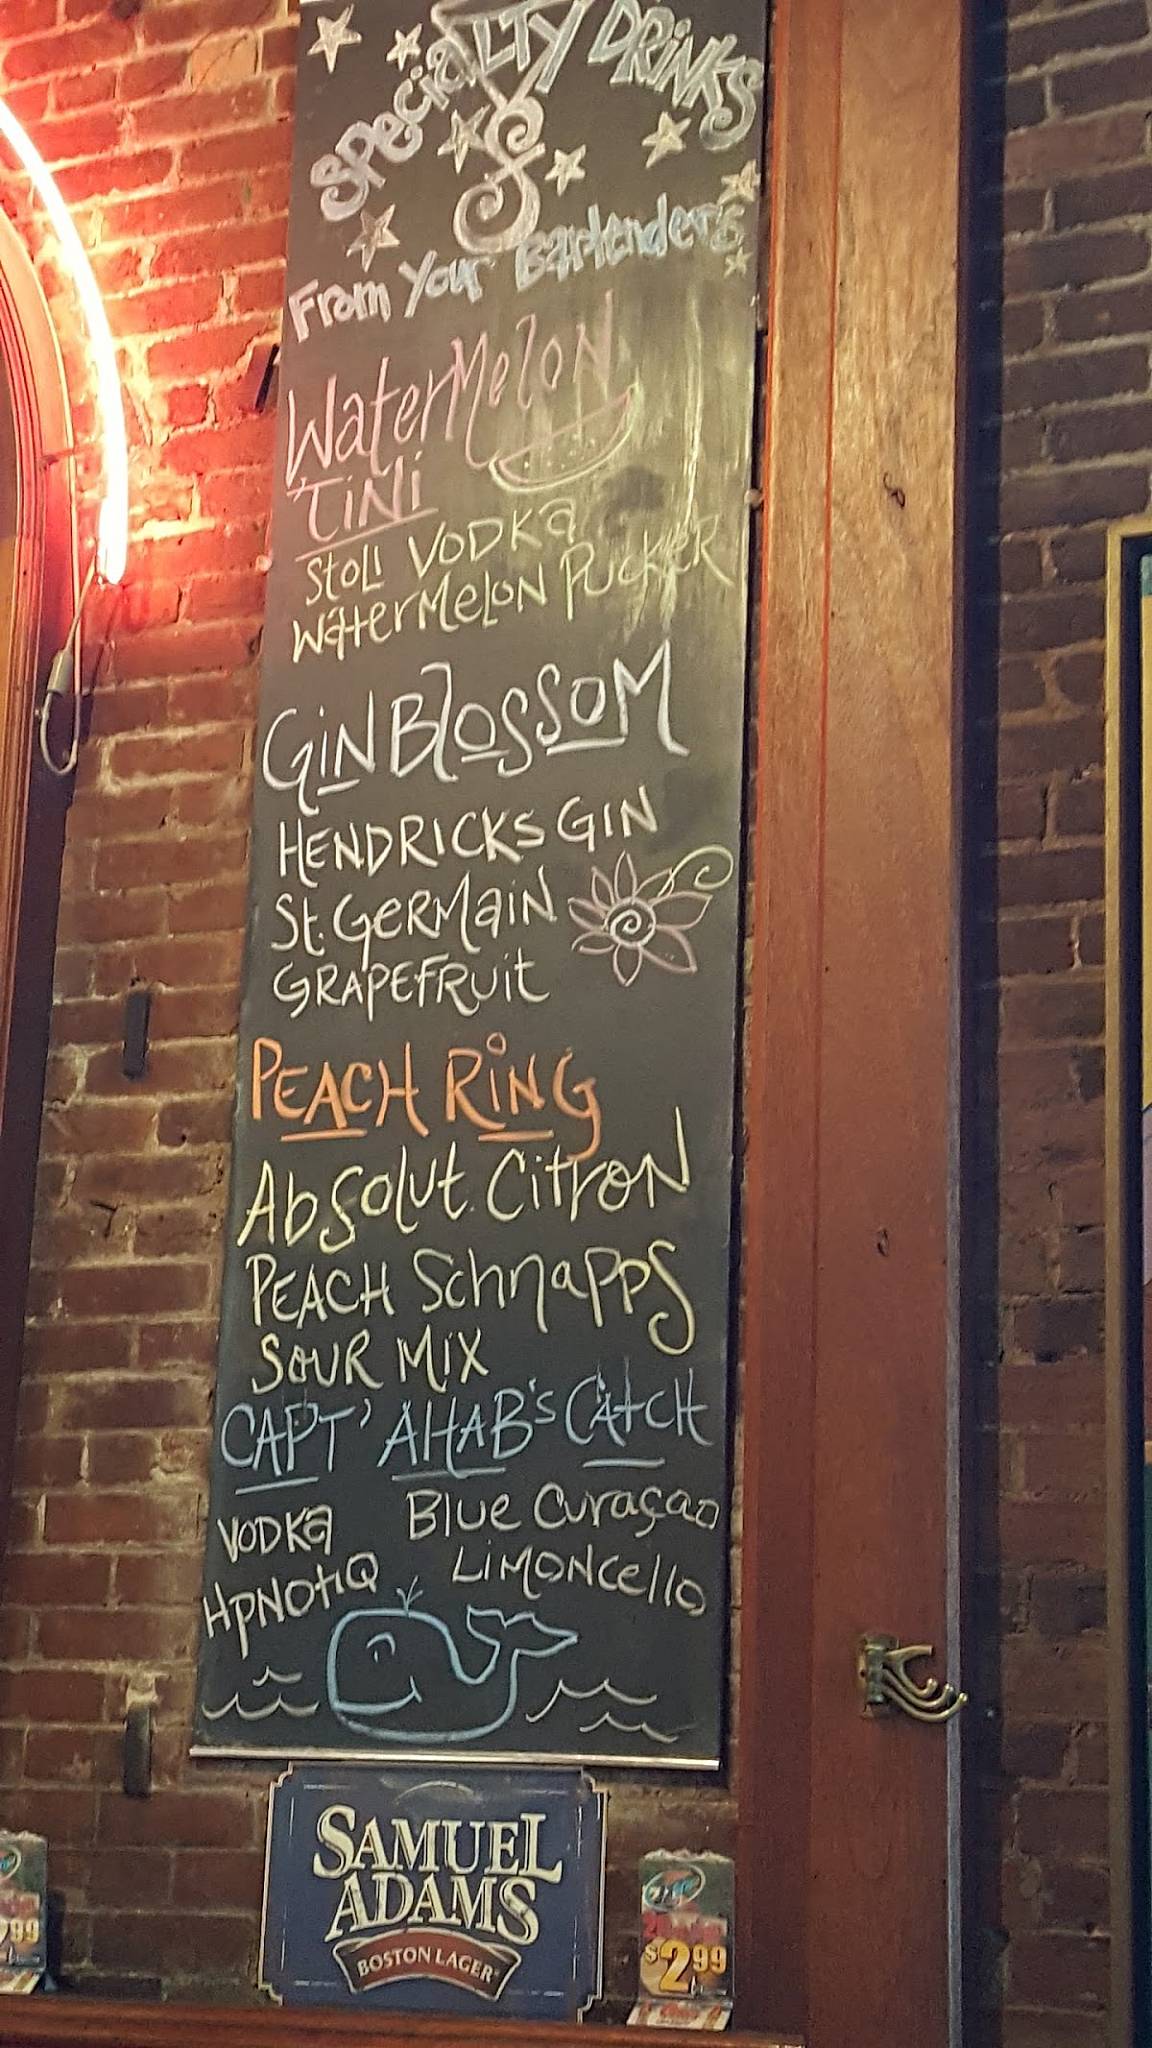 SPeciaLTY DRiNKS
From Your Bartenders
WaterMeloN
TiNi
Stoli VODKa
WaterMeloN PucKeR
GiN BlosSOM
HENDRICKS GIN
St. GerMaiN
GRAPEFRuit
PEACH RiNG
Absolut Citron
PEACH Schnapps
SOUR MIX
CAPT' AHAB's CAtCH
VODKa Blue Curaçao
HpNOtiQ LiMONcello
SAMUEL
ADAMS
BOSTON LAGER
$2.99